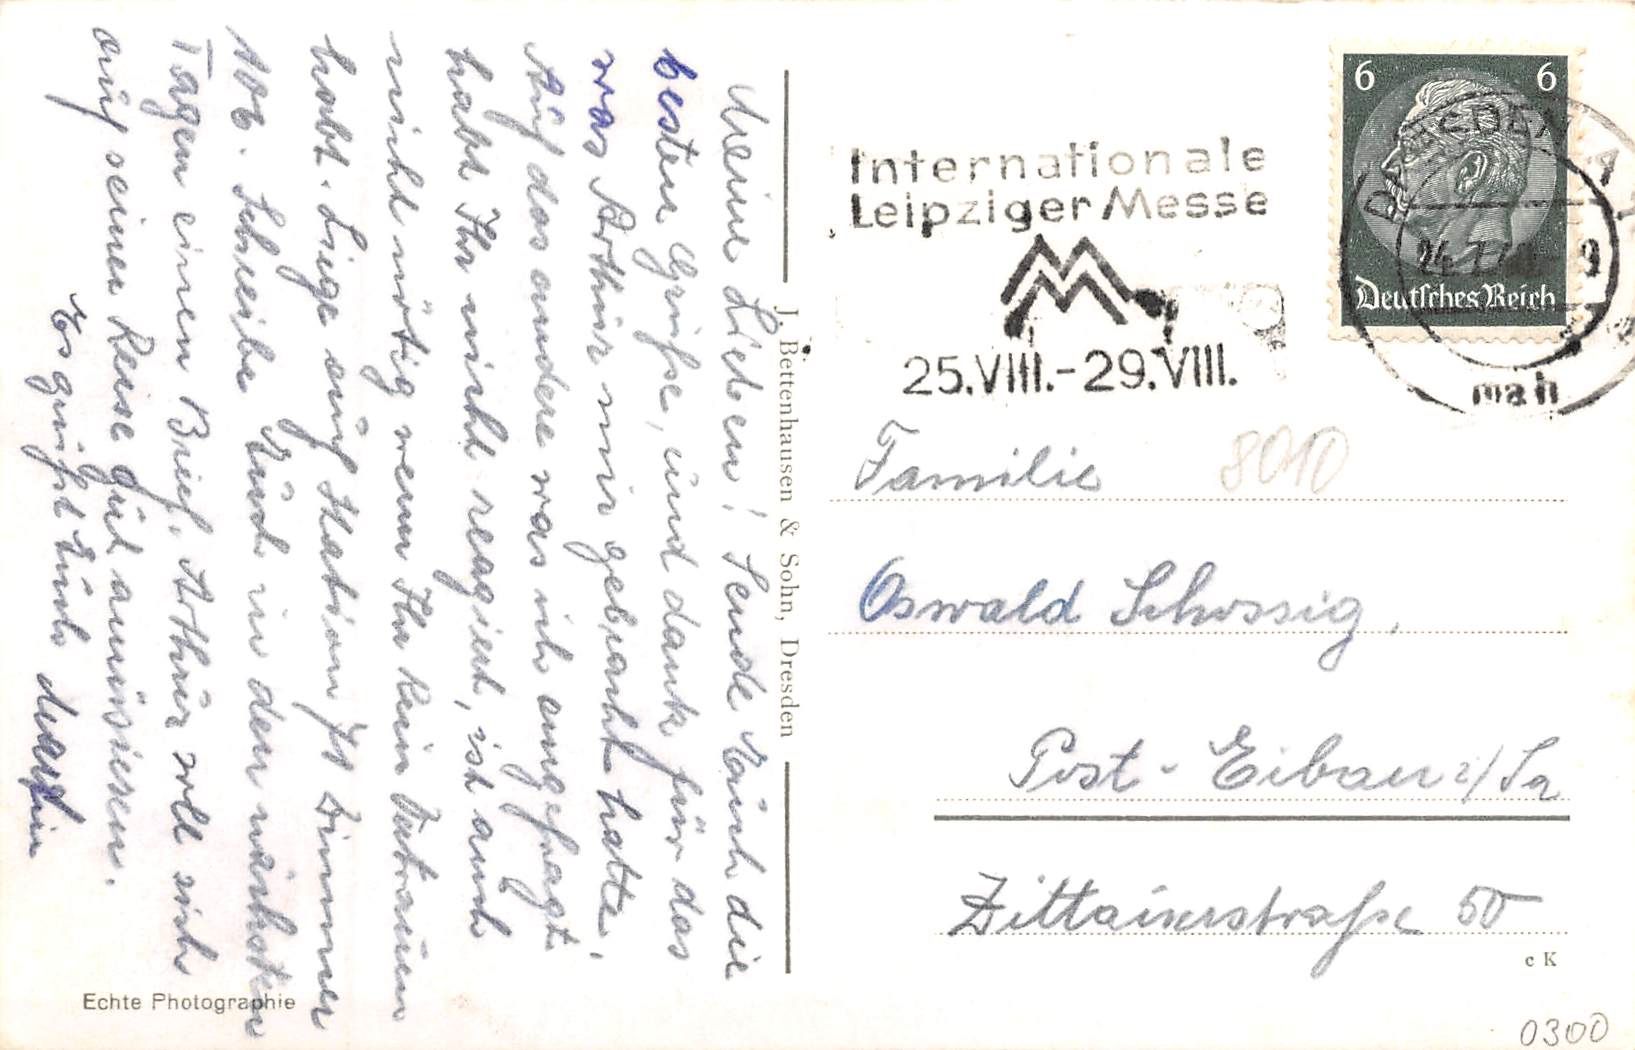 Meine Lieben! Sende Euch die
besten Grüße, und dank für das
was Arthur mir gebracht hatte.
Auf das andere was ich angefragt
habt Ihr nicht reagiert, ist auch
nicht nötig wenn Ihr kein Zutrauen
habt. Liege auf Station Zimmer
106. Schreibe Euch in den nächsten
Tagen einen Brief. Arthur soll sich
auf seiner Reise gut amüsieren.
Es grüßt Euch Martin
Echte Photographie
J. Bettenhausen & Sohn, Dresden
Internationale
Leipziger Messe
25.VIII.-29.VIII.
6 6
Deutsches Reich
24.7.
Familie
8010
Oswald Schossig,
Post-Eibau i/Sa
Zittauerstraße 50
c K
0300